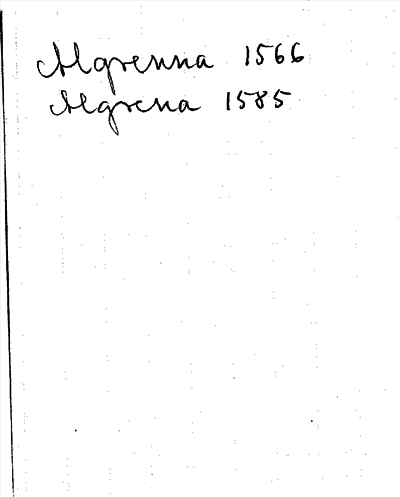 Algrenna 1566
Algrena 1585